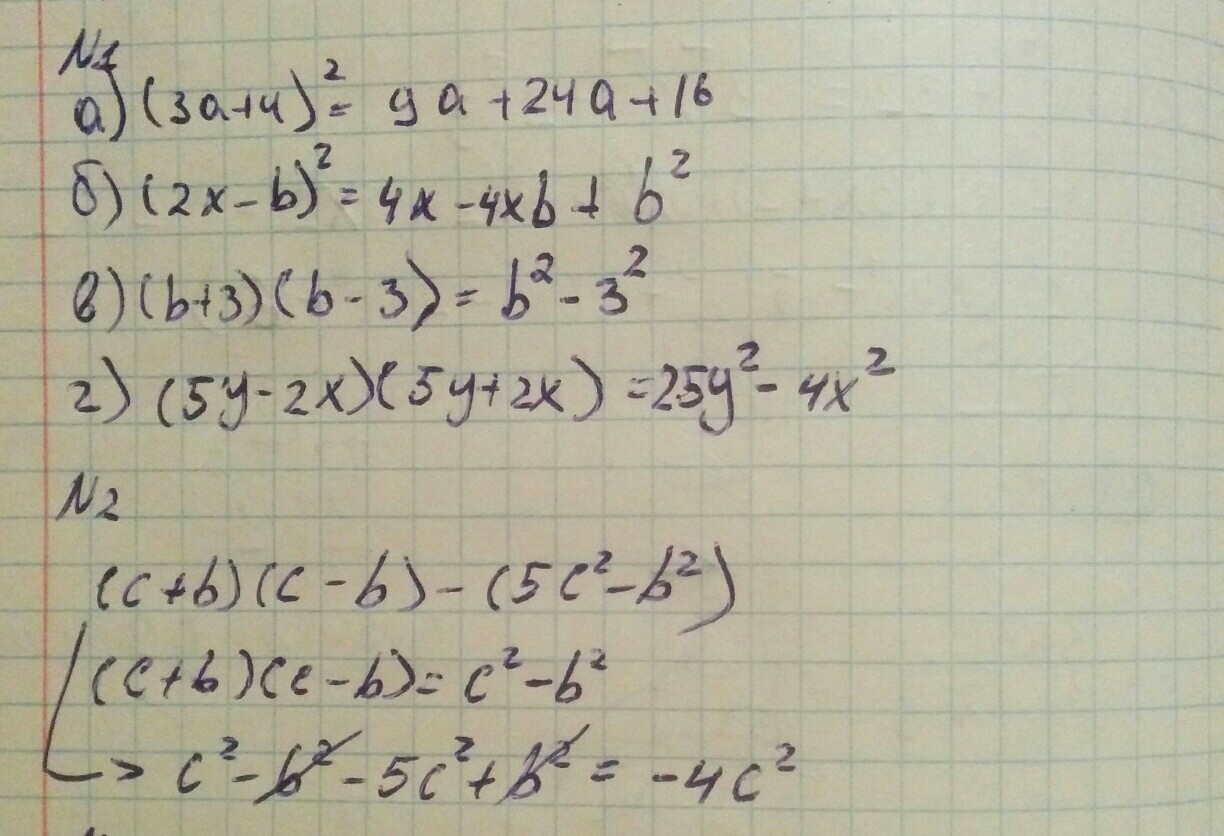 N1
а) (3a+4)² = 9a + 24a + 16
б) (2x-b)² = 4x - 4xb + b²
в) (b+3)(b-3) = b² - 3²
г) (5y-2x)(5y+2x) = 25y² - 4x²
N2
(c+b)(c-b)-(5c²-b²)
(c+b)(c-b) = c²-b²
-> c²-b²-5c²+b² = -4c²